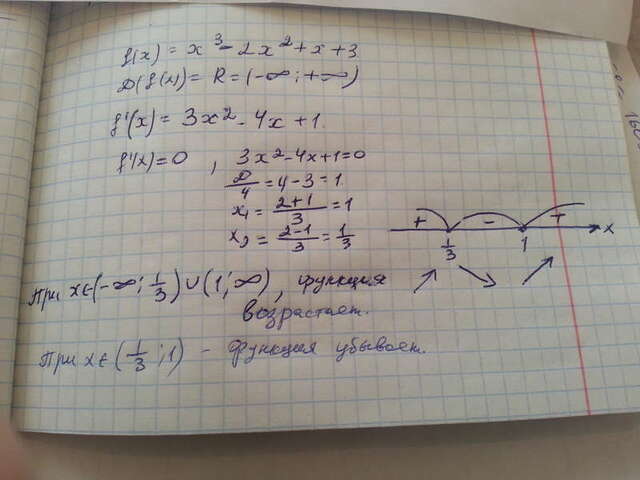 f(x) = x³ - 2x² + x + 3
D(f(x)) = R = (-∞; +∞)
f'(x) = 3x² - 4x + 1.
f'(x) = 0, 3x² - 4x + 1 = 0
D/4 = 4 - 3 = 1.
x₁ = (2+1)/3 = 1
x₂ = (2-1)/3 = 1/3
+ - + x
1/3 1
При x∈(-∞; 1/3) ∪ (1; ∞), функция
возрастает.
При x∈(1/3; 1) - функция убывает.